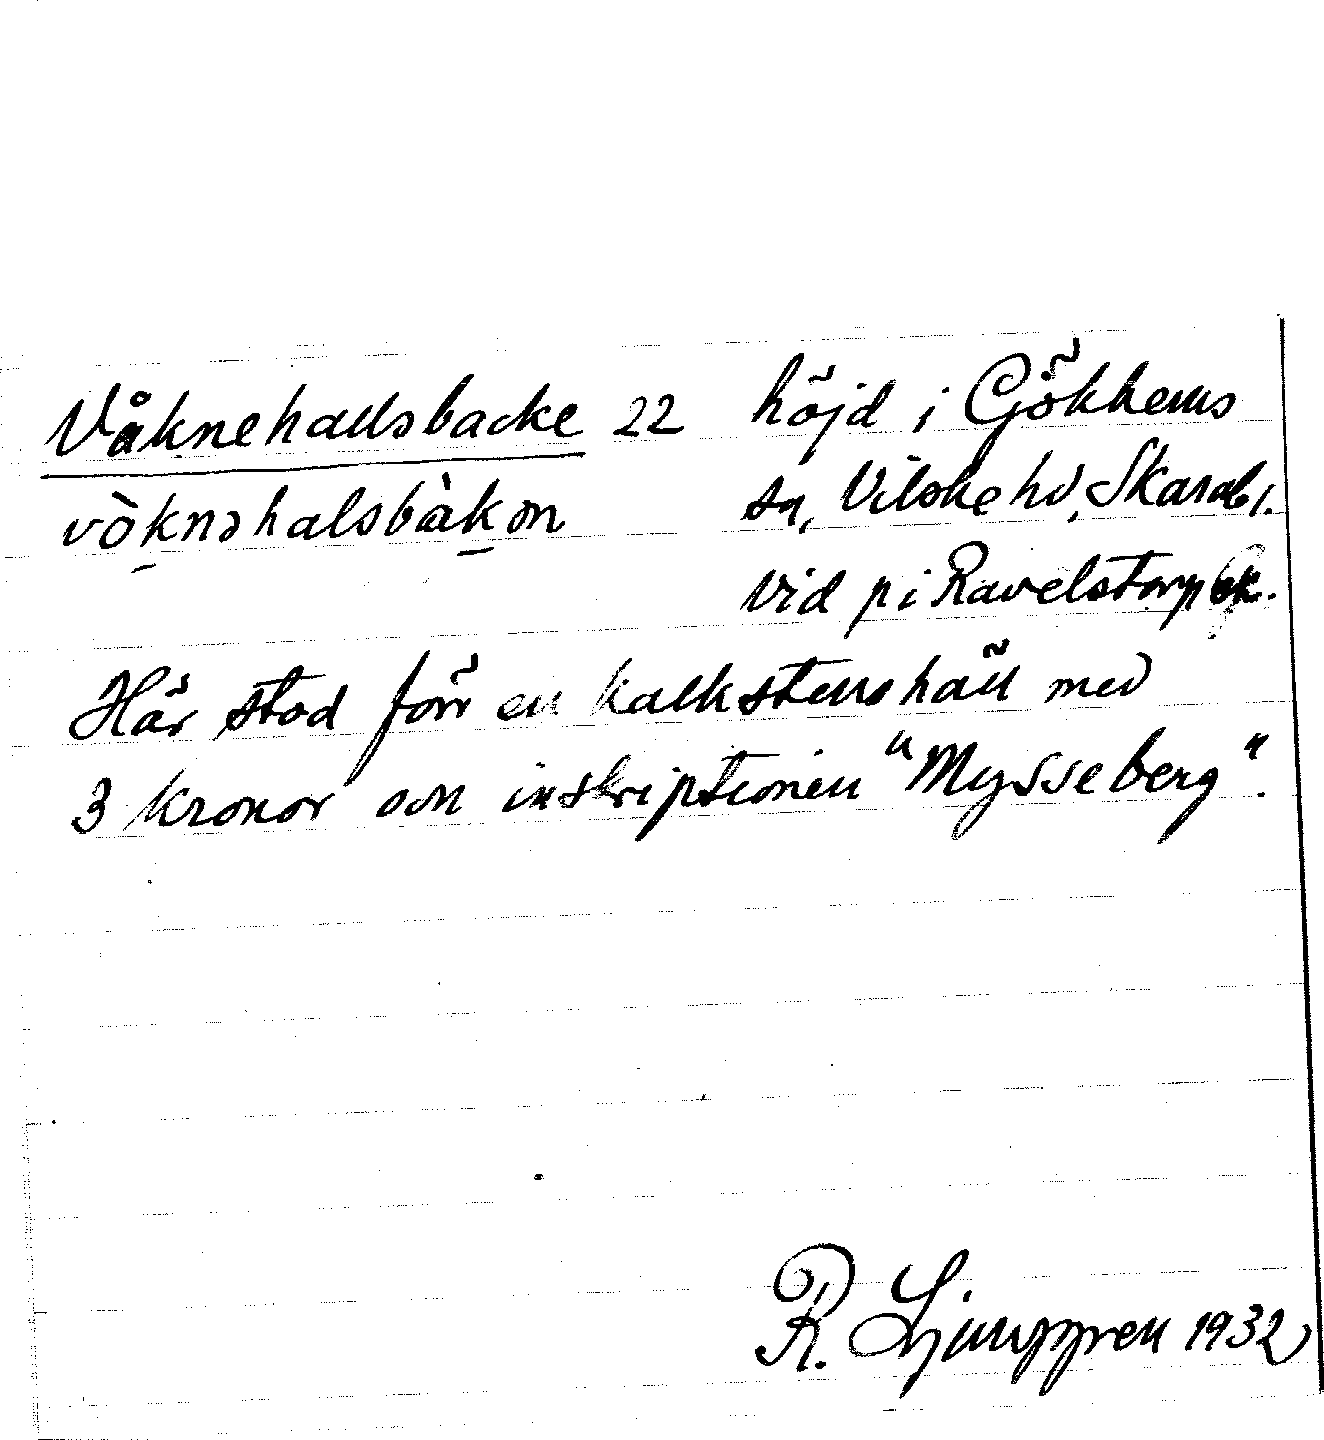 Våknehallsbacke 22 höjd i Gökhems
vòknəhalsbàkən sn, Vilske hd, Skarabl.
Vid på Ravelstorp
Här stod förr en kalkstenshäll med
3 kronor och inskriptionen "Mysseberg".
R. Ljunggren 1932